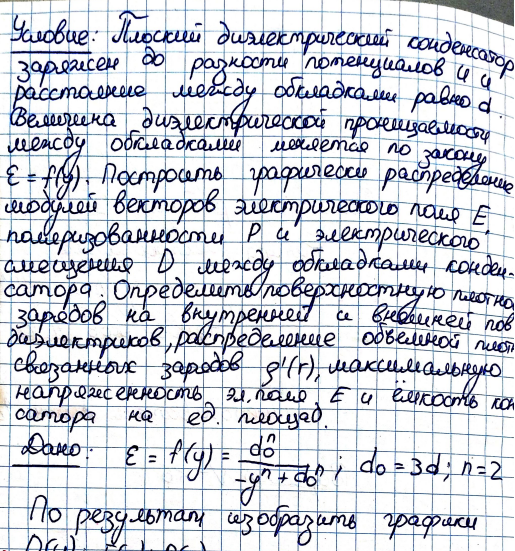 Условие: Плоский диэлектрический конденсатор
заряжен до разности потенциалов U и
расстояние между обкладками равно d.
Величина диэлектрической проницаемости
между обкладками меняется по закону
ε = f(y). Построить графически распределение
модулей векторов электрического поля E,
поляризованности P и электрического
смещения D между обкладками конден-
сатора. Определить поверхностную плотно
зарядов на внутренней и внешней пов
диэлектриков, распределение объёмной плотн
связанных зарядов ρ'(r), максимальную
напряженность эл. поля E и ёмкость кон
сатора на ед. площад.
Дано: ε = f(y) = d₀ⁿ / (-yⁿ + d₀ⁿ) ; d₀ = 3d ; n = 2
По результам изобразить графики